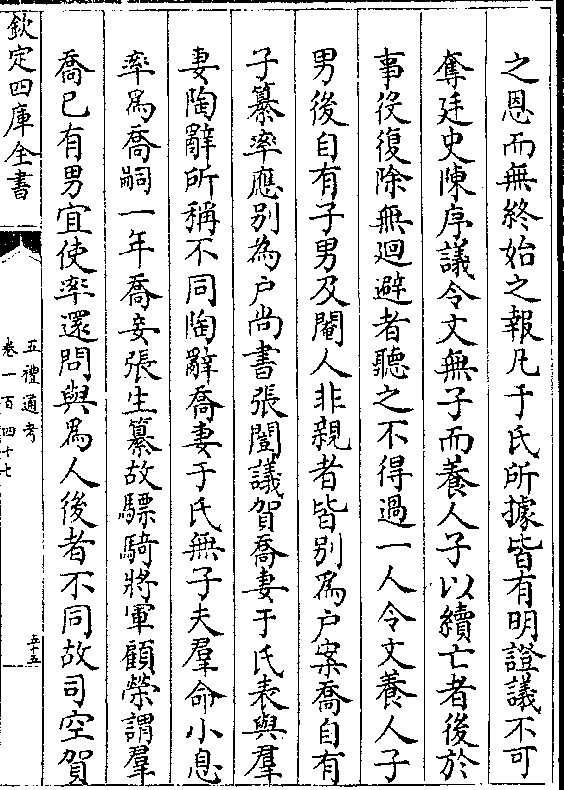 之恩而無終始之報凡于氏所據皆有明證議不可
奪廷史陳序議令文無子而養人子以續亡者後於
事役復除無迴避者聽之不得過一人令文養人子
男後自有子男及閹人非親者皆別爲户案喬自有
子纂率應别為户尚書張闓議賀喬妻于氏表與羣
妻陶辭所稱不同陶辭喬妻于氏無子夫羣命小息
率爲喬嗣一年喬妾張生纂故驃騎將軍顧榮謂羣
喬已有男宜使率還問與爲人後者不同故司空賀
欽定四庫全書
五禮通考
卷一百四十七
五十五